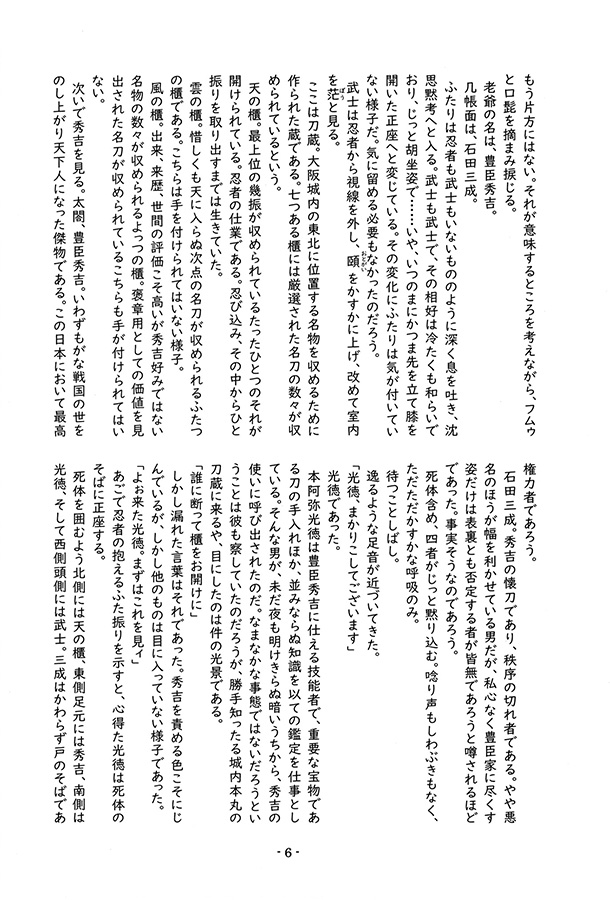 もう片方にはない。それが意味するところを考えながら、フムゥ
と口髭を摘まみ捩じる。
老爺の名は、豊臣秀吉。
几帳面は、石田三成。
ふたりは忍者も武士もいないもののように深く息を吐き、沈
思黙考へと入る。武士も武士で、その相好は冷たくも和らいで
おり、じっと胡坐姿で……いや、いつのまにかつま先を立て膝を
開いた正座へと変じている。その変化にふたりは気が付いてい
ない様子だ。気に留める必要もなかったのだろう。
武士は忍者から視線を外し、頤をかすかに上げ、改めて室内
を茫と見る。
ここは刀蔵。大阪城内の東北に位置する名物を収めるために
作られた蔵である。七つある櫃には厳選された名刀の数々が収
められているという。
天の櫃。最上位の幾振が収められているたったひとつのそれが
開けられている。忍者の仕業である。忍び込み、その中からひと
振りを取り出すまでは生きていた。
雲の櫃。惜しくも天に入らぬ次点の名刀が収められるふたつ
の櫃である。こちらは手を付けられてはいない様子。
風の櫃。出来、来歴、世間の評価こそ高いが秀吉好みではない
名物の数々が収められるよっつの櫃。褒章用としての価値を見
出された名刀が収められているこちらも手が付けられてはい
ない。
次いで秀吉を見る。太閤、豊臣秀吉。いわずもがな戦国の世を
のし上がり天下人になった傑物である。この日本において最高
権力者であろう。
石田三成。秀吉の懐刀であり、秩序の切れ者である。やや悪
名のほうが幅を利かせている男だが、私心なく豊臣家に尽くす
姿だけは表裏とも否定する者が皆無であろうと噂されるほど
であった。事実そうなのであろう。
死体含め、四者がじっと黙り込む。唸り声もしわぶきもなく、
ただただかすかな呼吸のみ。
待つことしばし。
逸るような足音が近づいてきた。
「光徳、まかりこしてございます」
光徳であった。
本阿弥光徳は豊臣秀吉に仕える技能者で、重要な宝物であ
る刀の手入れほか、並みならぬ知識を以ての鑑定を仕事とし
ている。そんな男が、未だ夜も明けきらぬ暗いうちから、秀吉の
使いに呼び出されたのだ。なまなかな事態ではないだろうとい
うことは彼も察していたのだろうが、勝手知ったる城内本丸の
刀蔵に来るや、目にしたのは件の光景である。
「誰に断って櫃をお開けに」
しかし漏れた言葉はそれであった。秀吉を責める色こそにじ
んでいるが、しかし他のものは目に入っていない様子であった。
「よぉ来た光徳。まずはこれを見ィ」
あごで忍者の抱えるふた振りを示すと、心得た光徳は死体の
そばに正座する。
死体を囲むよう北側には天の櫃、東側足元には秀吉、南側は
光徳、そして西側頭側には武士。三成はかわらず戸のそばであ
- 6 -